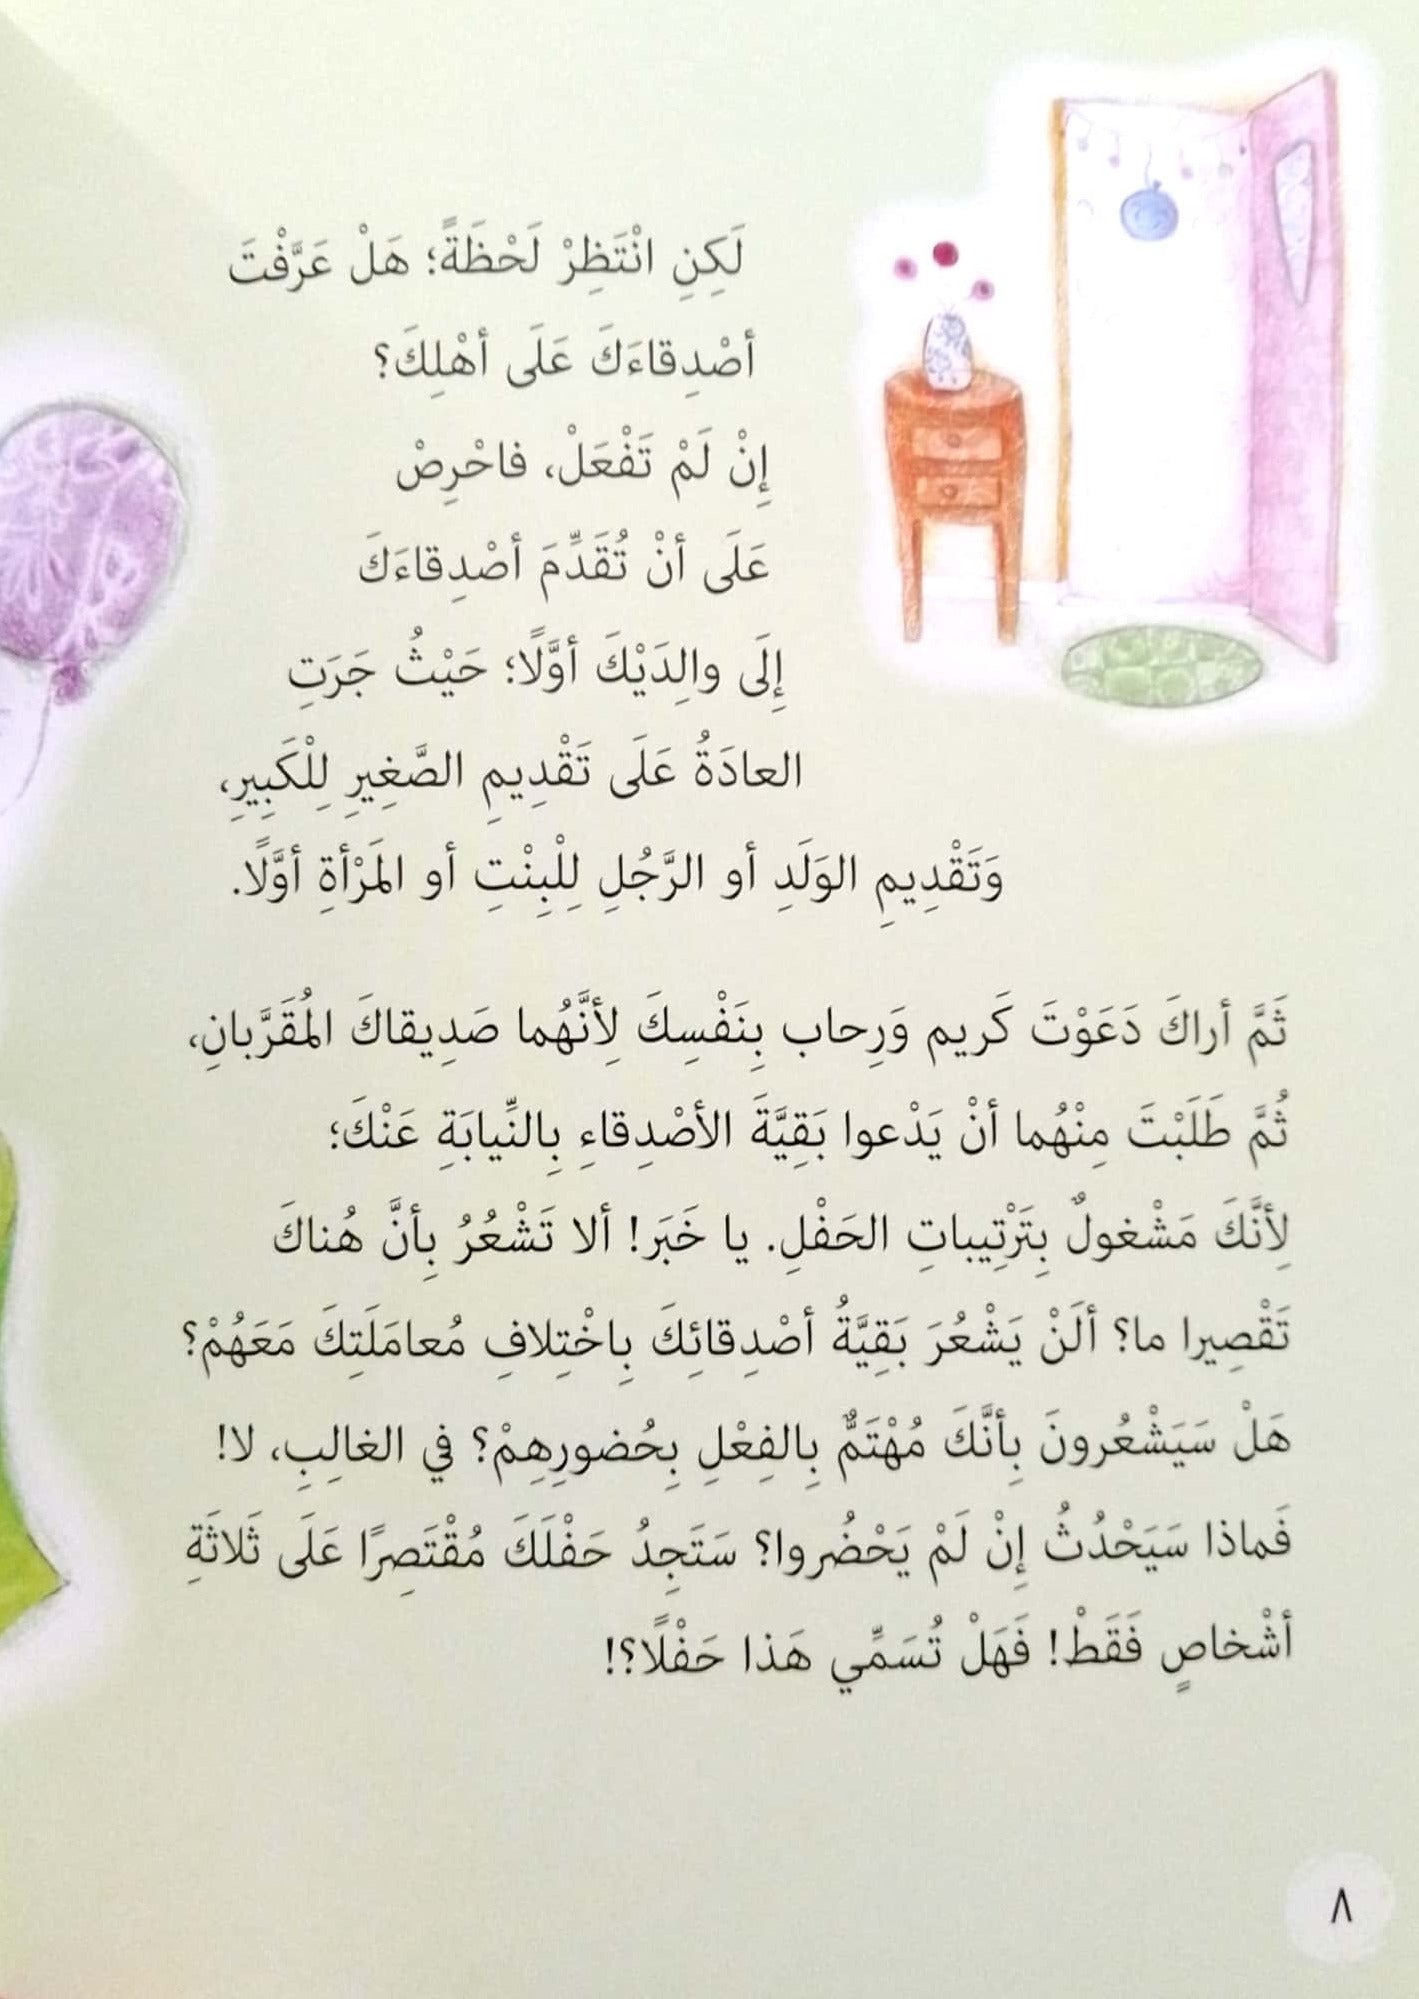 لَكِنِ انْتَظِرْ لَحْظَةً؛ هَلْ عَرَّفْتَ
أصْدِقاءَكَ عَلَى أهْلِكَ؟
إِنْ لَمْ تَفْعَلْ، فاحْرِصْ
عَلَى أنْ تُقَدِّمَ أصْدِقاءَكَ
إِلَى والِدَيْكَ أوَّلًا؛ حَيْثُ جَرَتِ
العادَةُ عَلَى تَقْدِيمِ الصَّغِيرِ لِلْكَبِيرِ،
وَتَقْدِيمِ الوَلَدِ أو الرَّجُلِ لِلْبِنْتِ أو المَرْأةِ أوَّلًا.
ثَمَّ أراكَ دَعَوْتَ كَريم وَرِحاب بِنَفْسِكَ لِأنَّهُما صَدِيقاكَ المُقَرَّبانِ،
ثُمَّ طَلَبْتَ مِنْهُما أنْ يَدْعوا بَقِيَّةَ الأصْدِقاءِ بِالنِّيابَةِ عَنْكَ؛
لِأنَّكَ مَشْغولٌ بِتَرْتِيباتِ الحَفْلِ. يا خَبَر! ألا تَشْعُرُ بِأنَّ هُناكَ
تَقْصِيرا ما؟ ألَنْ يَشْعُرَ بَقِيَّةُ أصْدِقائِكَ بِاخْتِلافِ مُعامَلَتِكَ مَعَهُمْ؟
هَلْ سَيَشْعُرونَ بِأنَّكَ مُهْتَمٌّ بِالفِعْلِ بِحُضورِهِمْ؟ في الغالِبِ، لا!
فَماذا سَيَحْدُثُ إِنْ لَمْ يَحْضُروا؟ سَتَجِدُ حَفْلَكَ مُقْتَصِرًا عَلَى ثَلاثَةِ
أشْخاصٍ فَقَطْ! فَهَلْ تُسَمِّي هَذا حَفْلًا؟!
٨